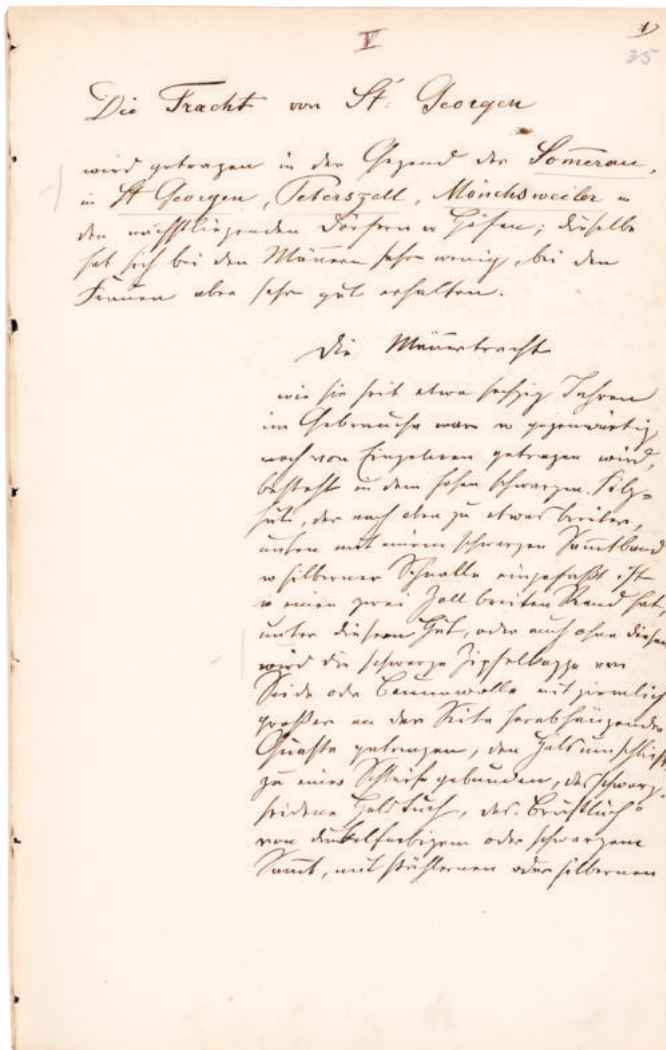 V
1)
35
Die Tracht von St. Georgen
wird getragen in der Gegend der Som̄erau,
in St Georgen, Peterszell, Mönchsweiler u
den nächstliegenden Dörfern u Höfen; dieselbe
hat sich bei den Män̄ern sehr wenig, bei den
Frauen aber sehr gut erhalten.
Die Män̄ertracht
wie sie seit etwa sechzig Jahren
im Gebrauche war u gegenwärtig
noch von Einzelnen getragen wird,
besteht in dem hohen schwarzen Filz-
hut, der nach oben zu etwas breiter,
unten mit einem schwarzen Sam̄tband
u silberner Schnalle eingefaßt ist
u einen zwei Zoll breiten Rand hat,
unter diesem Hut, oder auch ohne diesen
wird die schwarze Zipfelkappe von
Seide oder Baumwolle mit ziemlich
großer an der Seite herabhängender
Quaste getragen, den Hals umschließt
zu einer Schleife gebunden, das schwarz-
seidene Halstuch, das Brusttuch
von dunkelfarbigem oder schwarzem
Sam̄t, mit stählernen oder silbernen